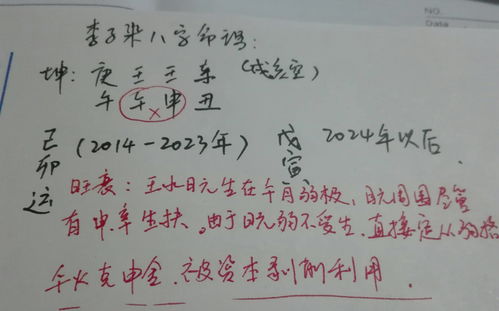 NO.
李子柒八字命理:
坤: 庚 壬 壬 辛 (戌亥空)
午 午 申 丑
己卯运 (2014-2023年) 戊寅 2024年以后.
旺衰: 壬水日元生在午月弱极, 日元周围尽管
有申辛生扶。由于日元弱不受生, 直接定从弱格
午火克申金. 被资本剥削利用.